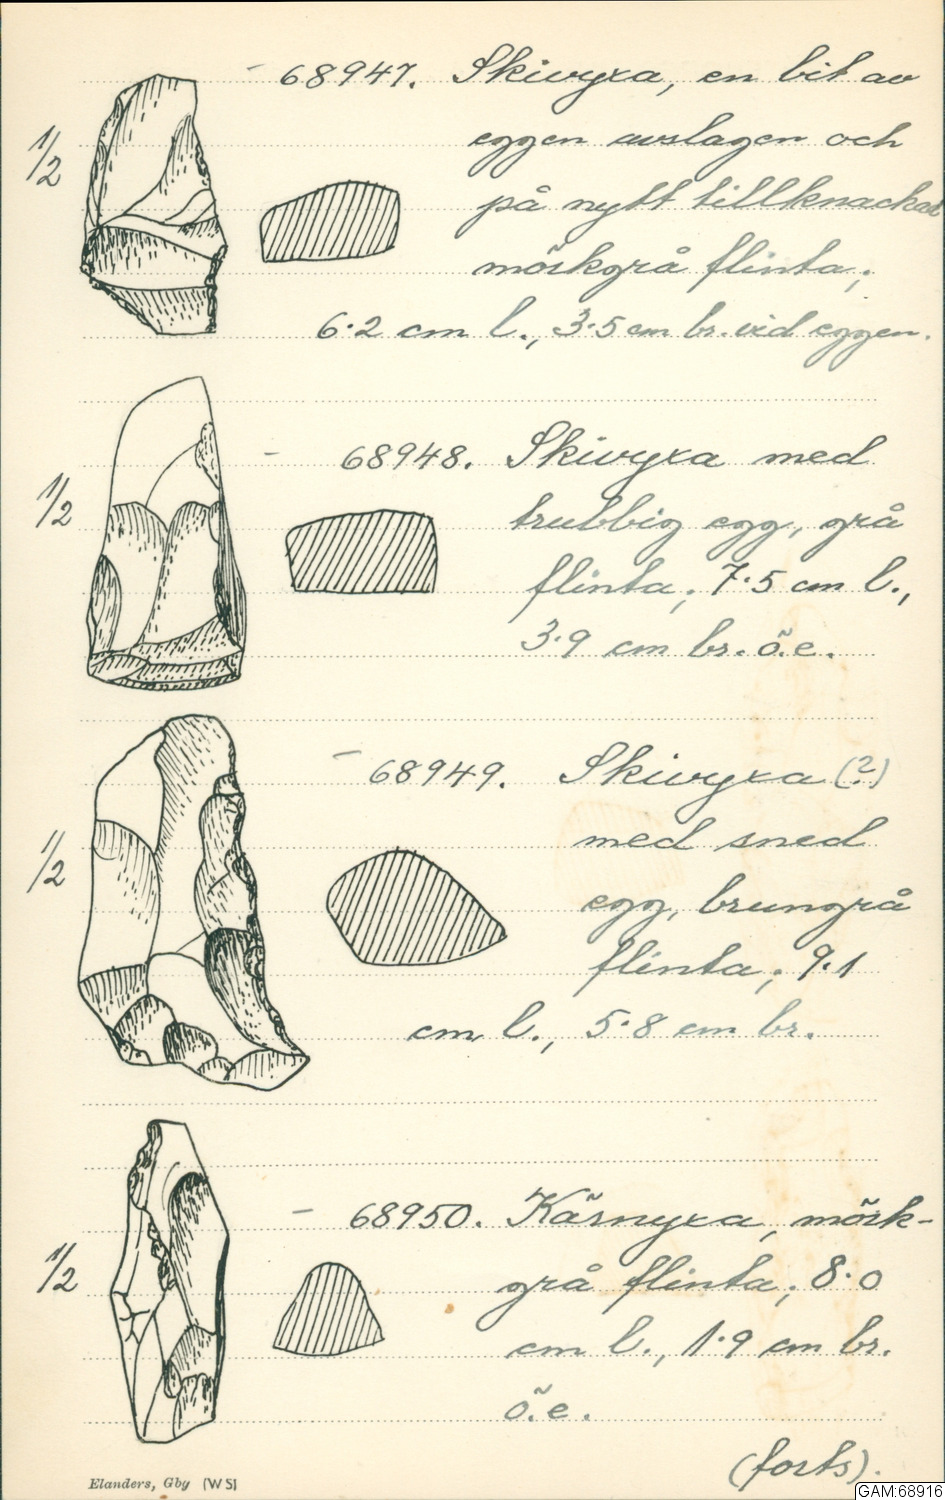 - 68947. Skivyxa, en bit av
1/2 eggen avslagen och
på nytt tillknackad
mörkgrå flinta;
6·2 cm l., 3·5 cm br. vid eggen.
- 68948. Skivyxa med
1/2 trubbig egg, grå
flinta; 7·5 cm l.,
3·9 cm br. ö.e.
- 68949. Skivyxa (?)
med sned
1/2 egg, brungrå
flinta; 9·1
cm l., 5·8 cm br.
- 68950. Kärnyxa, mörk-
1/2 grå flinta; 8·0
cm l., 1·9 cm br.
ö.e.
(forts).
Elanders, Gby (WS)
GAM:68916